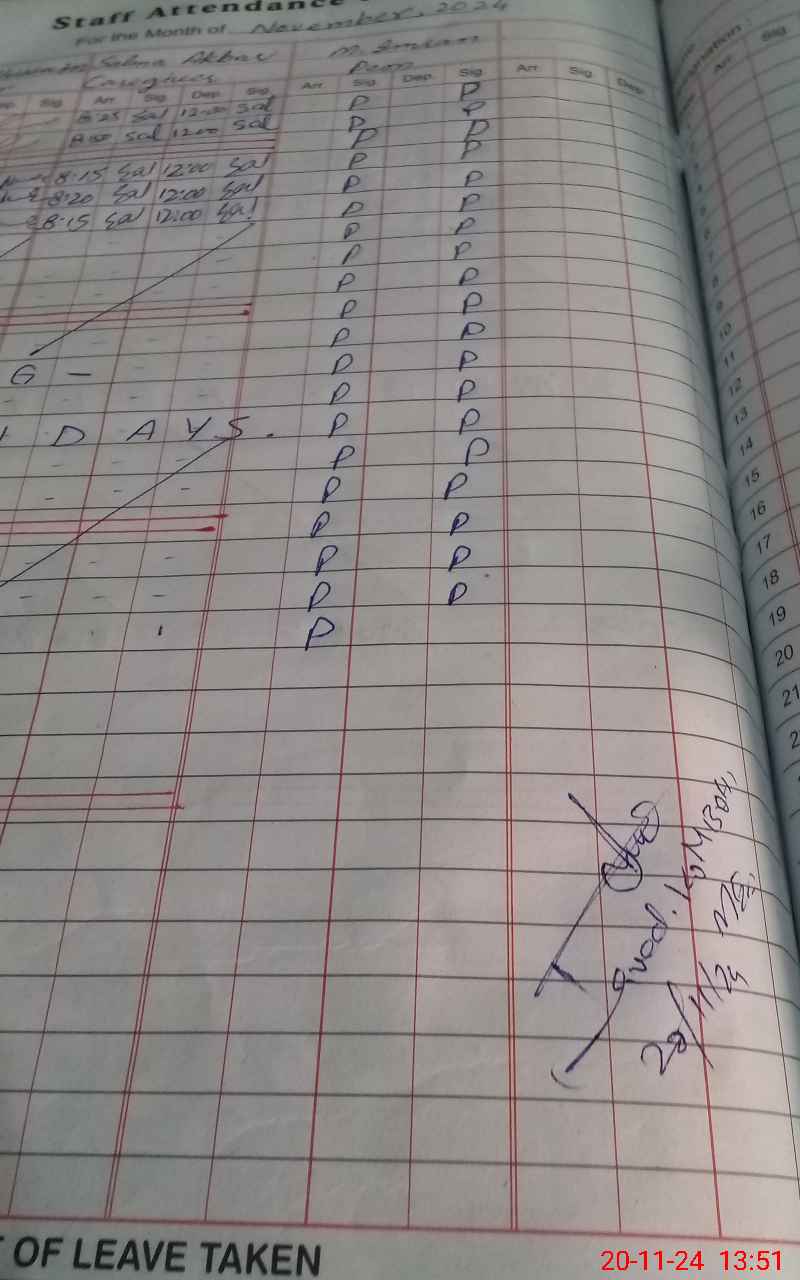 Staff Attendance
For the Month of November, 2024
Salma Akbar M. Imran
Caregiver Peon
Sig Arr. Sig Dep. Sig Arr Sig Dep. Sig Arr. Sig. Dep. Arr Sig
8:25 Sal 12:00 Sal P P
Sal 12:00 Sal P P
P P
8:15 Sal 12:00 Sal P P
8:20 Sal 12:00 Sal P P
8:15 Sal 12:00 Sal P P
P P
- - - P P
P P
P P
P P
G - P P
P P
D A Y S. P P
- - - P P
- - - P P
P P
- - - P P
- - - P P
P
9
10
11
12
13
14
15
16
17
18
19
20
21
20/11/24
OF LEAVE TAKEN
20-11-24 13:51